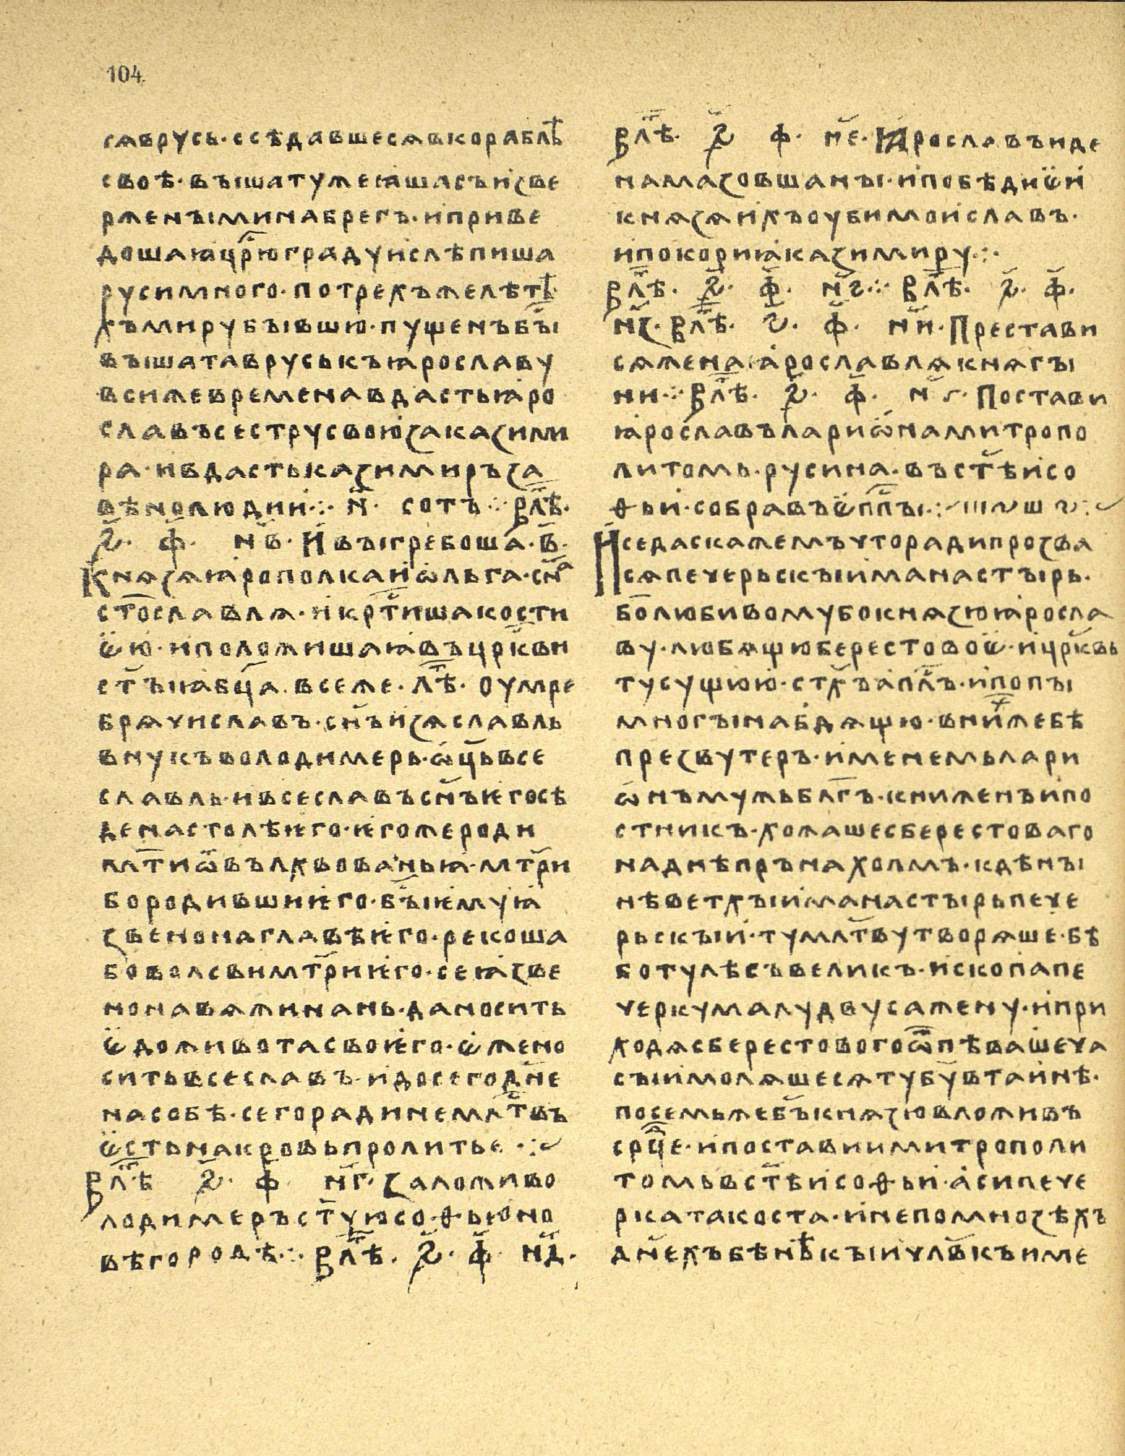 104
сѧврусь·ссѣдавшесѧвкораблѣ
своѣ·вышатужеꙗшасъизве
рженыминабрегъ·иприве
дошаꙗцр҃югрⷶадуислѣпиша
русимного·потрехъжелѣтѣ҃
хъмирубывшю·пущенъбы҃
вышатаврускъꙗрославу
всижевременавдастьꙗро
славъсеструсвоюзаказими
ра·ивдастьказимиръза
вѣнолюдии·:· н҃· сотъ·:·влѣ҃·
҂ѕ҃· ф҃· н҃в·Ивыгребоша·в҃·
Кнѧзѧꙗрополкаиѡльга·сн҃а
ст҃ославлѧ·икрт҃ишакости
ѥю·иположишаꙗвъцр҃кви
ст҃ыꙗбц҃а·всеже·лѣ҃·оумре
брѧчиславъ·сн҃ъизѧславль
внукъволодимерь·ѡц҃ьвсе
славль·ивсеславъсн҃ъѥгосѣ
денастолѣѥго·ѥгожероди
мт҃иѿвълхвованьꙗ·мт҃ри
бородившиѥго·бы҃ѥмуꙗ
звенонаглавѣѥго·рекоша
боволсвимт҃риѥго·сеꙗзве
нонавѧжинань·даносить
ѥдоживотасвоѥго·ѥжено
ситьвсеславъ·идосегодн҃е
насобѣ·сегорадинемлт҃въ
ѥстьнакровьпролитье·:·
влѣ҃ ҂ѕ҃· ф҃ н҃г·Заложиво
лодимеръст҃уюсоѳьюно
вѣгородѣ·:·влѣ҃·҂ѕ҃·ф҃·н҃д·
влѣ҃· ҂ѕ҃ ф҃· н҃е·Ꙗрославъиде
намазовшаны·ипобѣдиѥи
кнѧзѧихъоубимоиславъ·
ипокориꙗказимиру·:·
влѣ҃·҂ѕ҃·ф҃·н҃ѕ·:·влѣ҃·҂ѕ҃·ф҃·
н҃з·влѣ҃·҂ѕ҃·ф҃·н҃и·Престави
сѧженаꙗрославлѧкнѧгы
ни·:·влѣ҃·҂ѕ҃·ф҃·н҃ѳ·Постави
ꙗрославълариѡнамитропо
литомь·русина·въст҃ѣисо
ѳьи·собравъѥпп҃ы·:·
Иседаскажемъчторадипрозва
сѧпечерьскыиманастырь·
бо҃любивомубокнѧзюꙗросла
ву·любѧщюберестовоѥ·ицр҃квь
тусущюю·ст҃хъапл҃ъ·ипопы
многынабдѧщю·внижебѣ
презвутеръ·именемьлари
ѡнъмужьблг҃ъ·книженъипо
стникъ·хожашесберестоваго
наднѣпръ·нахолмъ·кдѣны
нѣветхыиманастырьпече
рьскыи·тумлт҃вутворѧше·бѣ
ботулѣсъвеликъ·ископапе
черкумалудвусажену·ипри
ходѧсберестовогоѿпѣвашеча
сыимолѧшесѧтубу҃втаинѣ·
посемьжебъ҃кнѧзювложивъ
ср҃це·ипоставиимитрополи
томьвст҃ѣисоѳьи·асипече
ркатакоста·инепомнозѣхъ
дн҃ехъбѣнѣкыичлв҃къиме